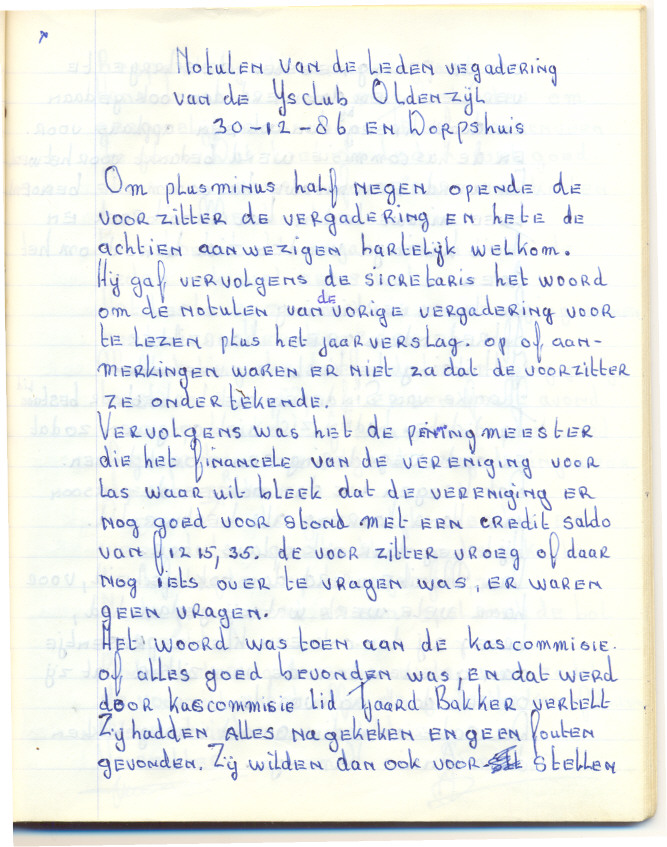 Notulen van de Leden vegadering
van de Ysclub Oldenzijl
30-12-86 en Dorpshuis
Om plusminus half negen opende de
voorzitter de vergadering en hete de
achtien aanwezigen hartelijk welkom.
Hij gaf vervolgens de sicretaris het woord
om de notulen van de vorige vergadering voor
te lezen plus het jaarverslag. op of aan-
merkingen waren er niet zadat de voorzitter
ze ondertekende.
Vervolgens was het de penningmeester
die het financele van de vereniging voor
las waar uit bleek dat de vereniging er
nog goed voor stond met een credit saldo
van f 1215,35. de voor zitter vroeg of daar
nog iets over te vragen was, er waren
geen vragen.
Het woord was toen aan de kascommisie.
of alles goed bevonden was, en dat werd
door kascommisie lid Tjaard Bakker vertelt
Zij hadden alles nagekeken en geen fouten
gevonden. Zij wilden dan ook voor stellen